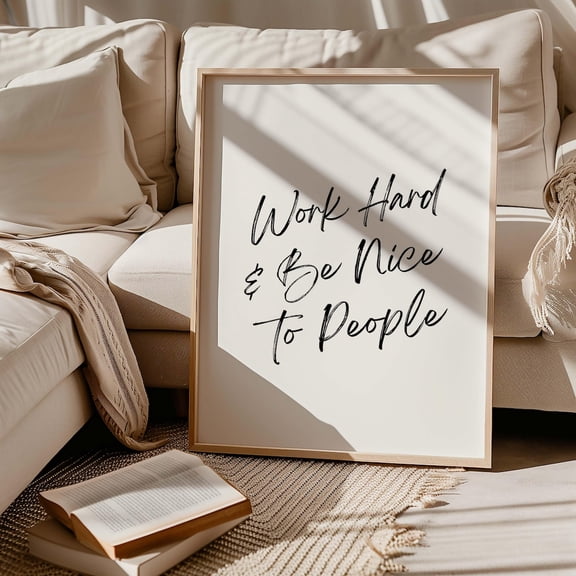 Work Hard
& Be Nice
To People